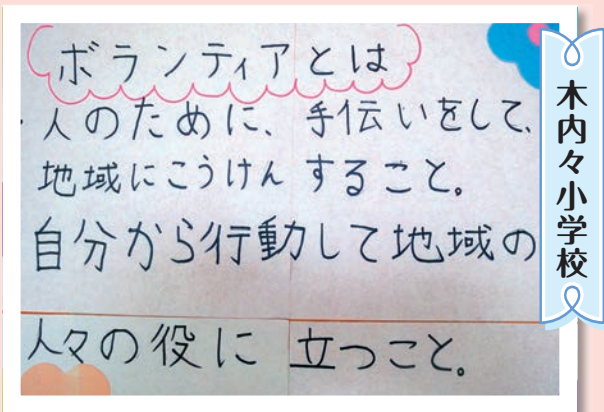 ボランティアとは
・人のために、手伝いをして、
地域にこうけんすること。
自分から行動して地域の
人々の役に立つこと。
木内々小学校